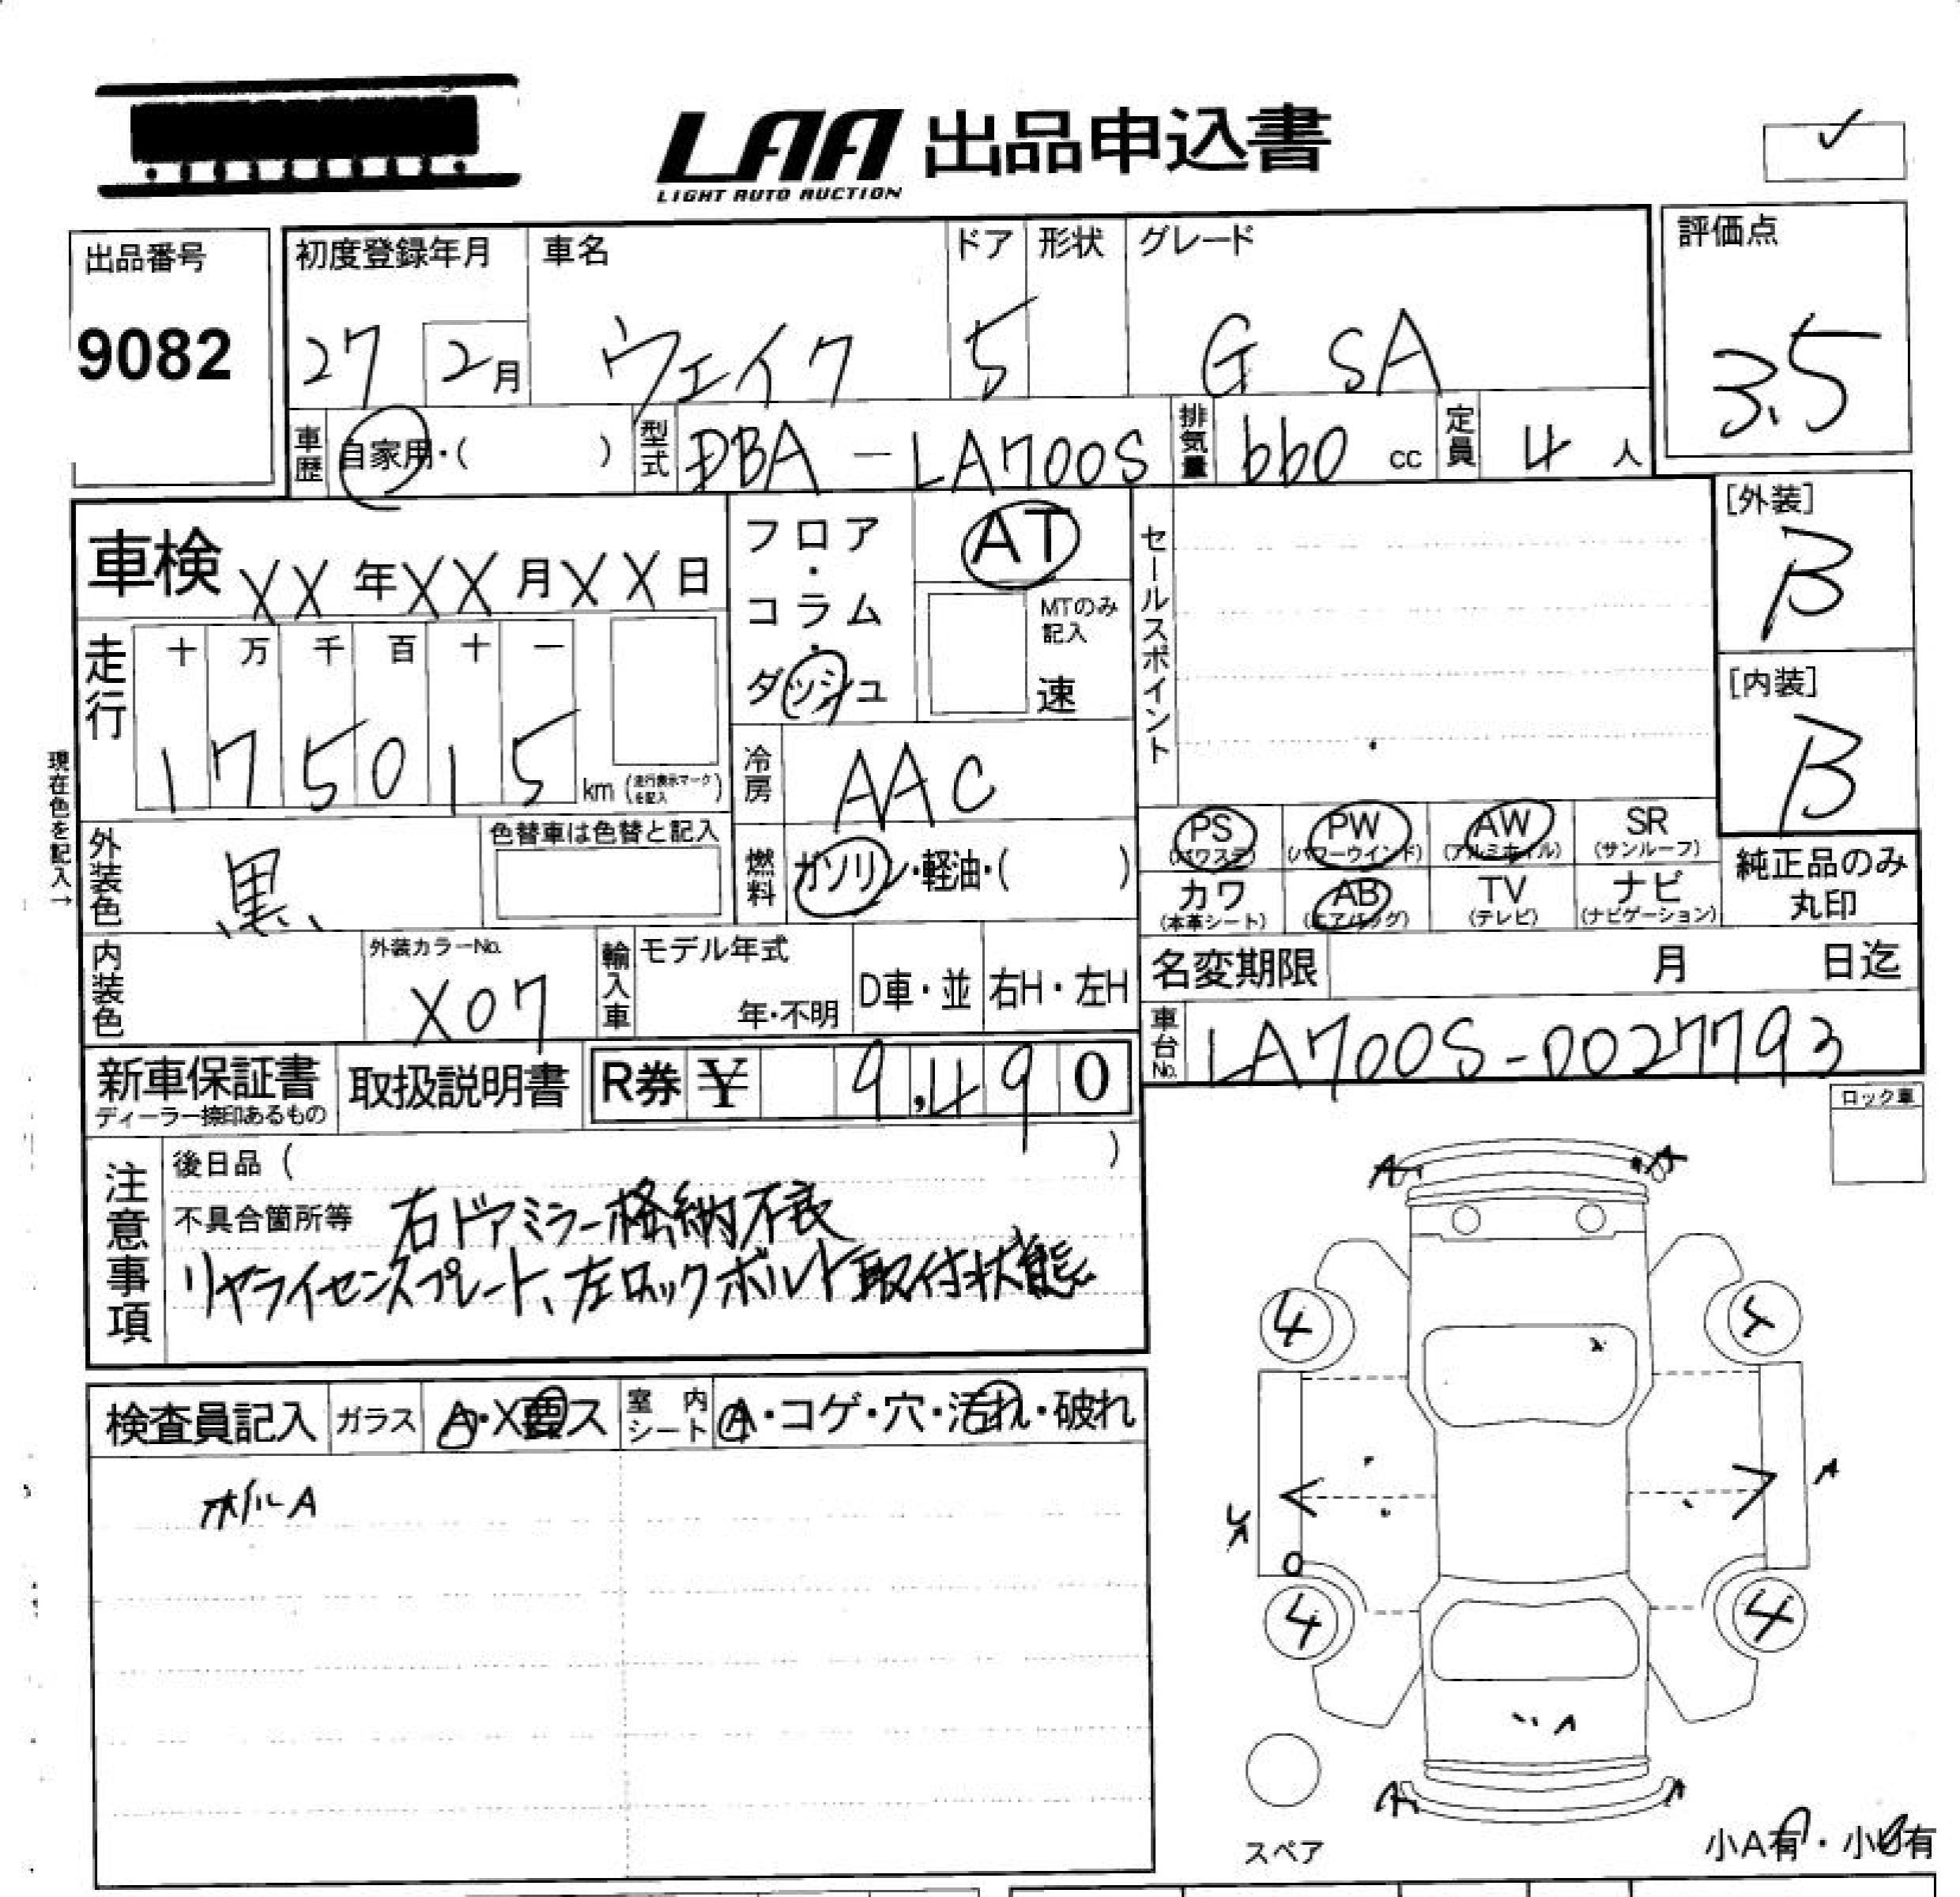 LAA 出品申込書
LIGHT AUTO AUCTION
✓
出品番号
9082
初度登録年月 車名 ドア 形状 グレード
27 2月 ウェイク 5 G SA
評価点
3.5
車歴 自家用・( ) 型式 DBA-LA700S 排気量 660 cc 定員 4 人
車検 XX年XX月XX日
フロア・コラム・ダッシュ
AT
MTのみ記入
速
セールスポイント
[外装]
B
[内装]
B
走行
十 万 千 百 十 一
1 7 5 0 1 5 km (走行表示マークを記入)
現在色を記入→
冷房 AAC
外装色 黒
色替車は色替と記入
燃料 ガソリン・軽油・( )
PS (パワステ) PW (パワーウインド) AW (アルミホイル) SR (サンルーフ)
カワ (本革シート) AB (エアバッグ) TV (テレビ) ナビ (ナビゲーション)
純正品のみ丸印
内装色
外装カラーNo.
X07
輸入車 モデル年式
年・不明
D車・並 右H・左H
名変期限 月 日迄
車台No. LA700S-0027793
新車保証書
ディーラー捺印あるもの
取扱説明書
R券 ¥ 9,490
ロック車
注意事項
後日品 ( )
不具合箇所等 右ドアミラー格納不良
リヤライセンスプレート、左ロックボルト取付状態
検査員記入 ガラス A・X要ス 室内シート A・コゲ・穴・汚れ・破れ
ホイルA
A A
4 4
A
4 4
A
A A
スペア
小A有・小U有